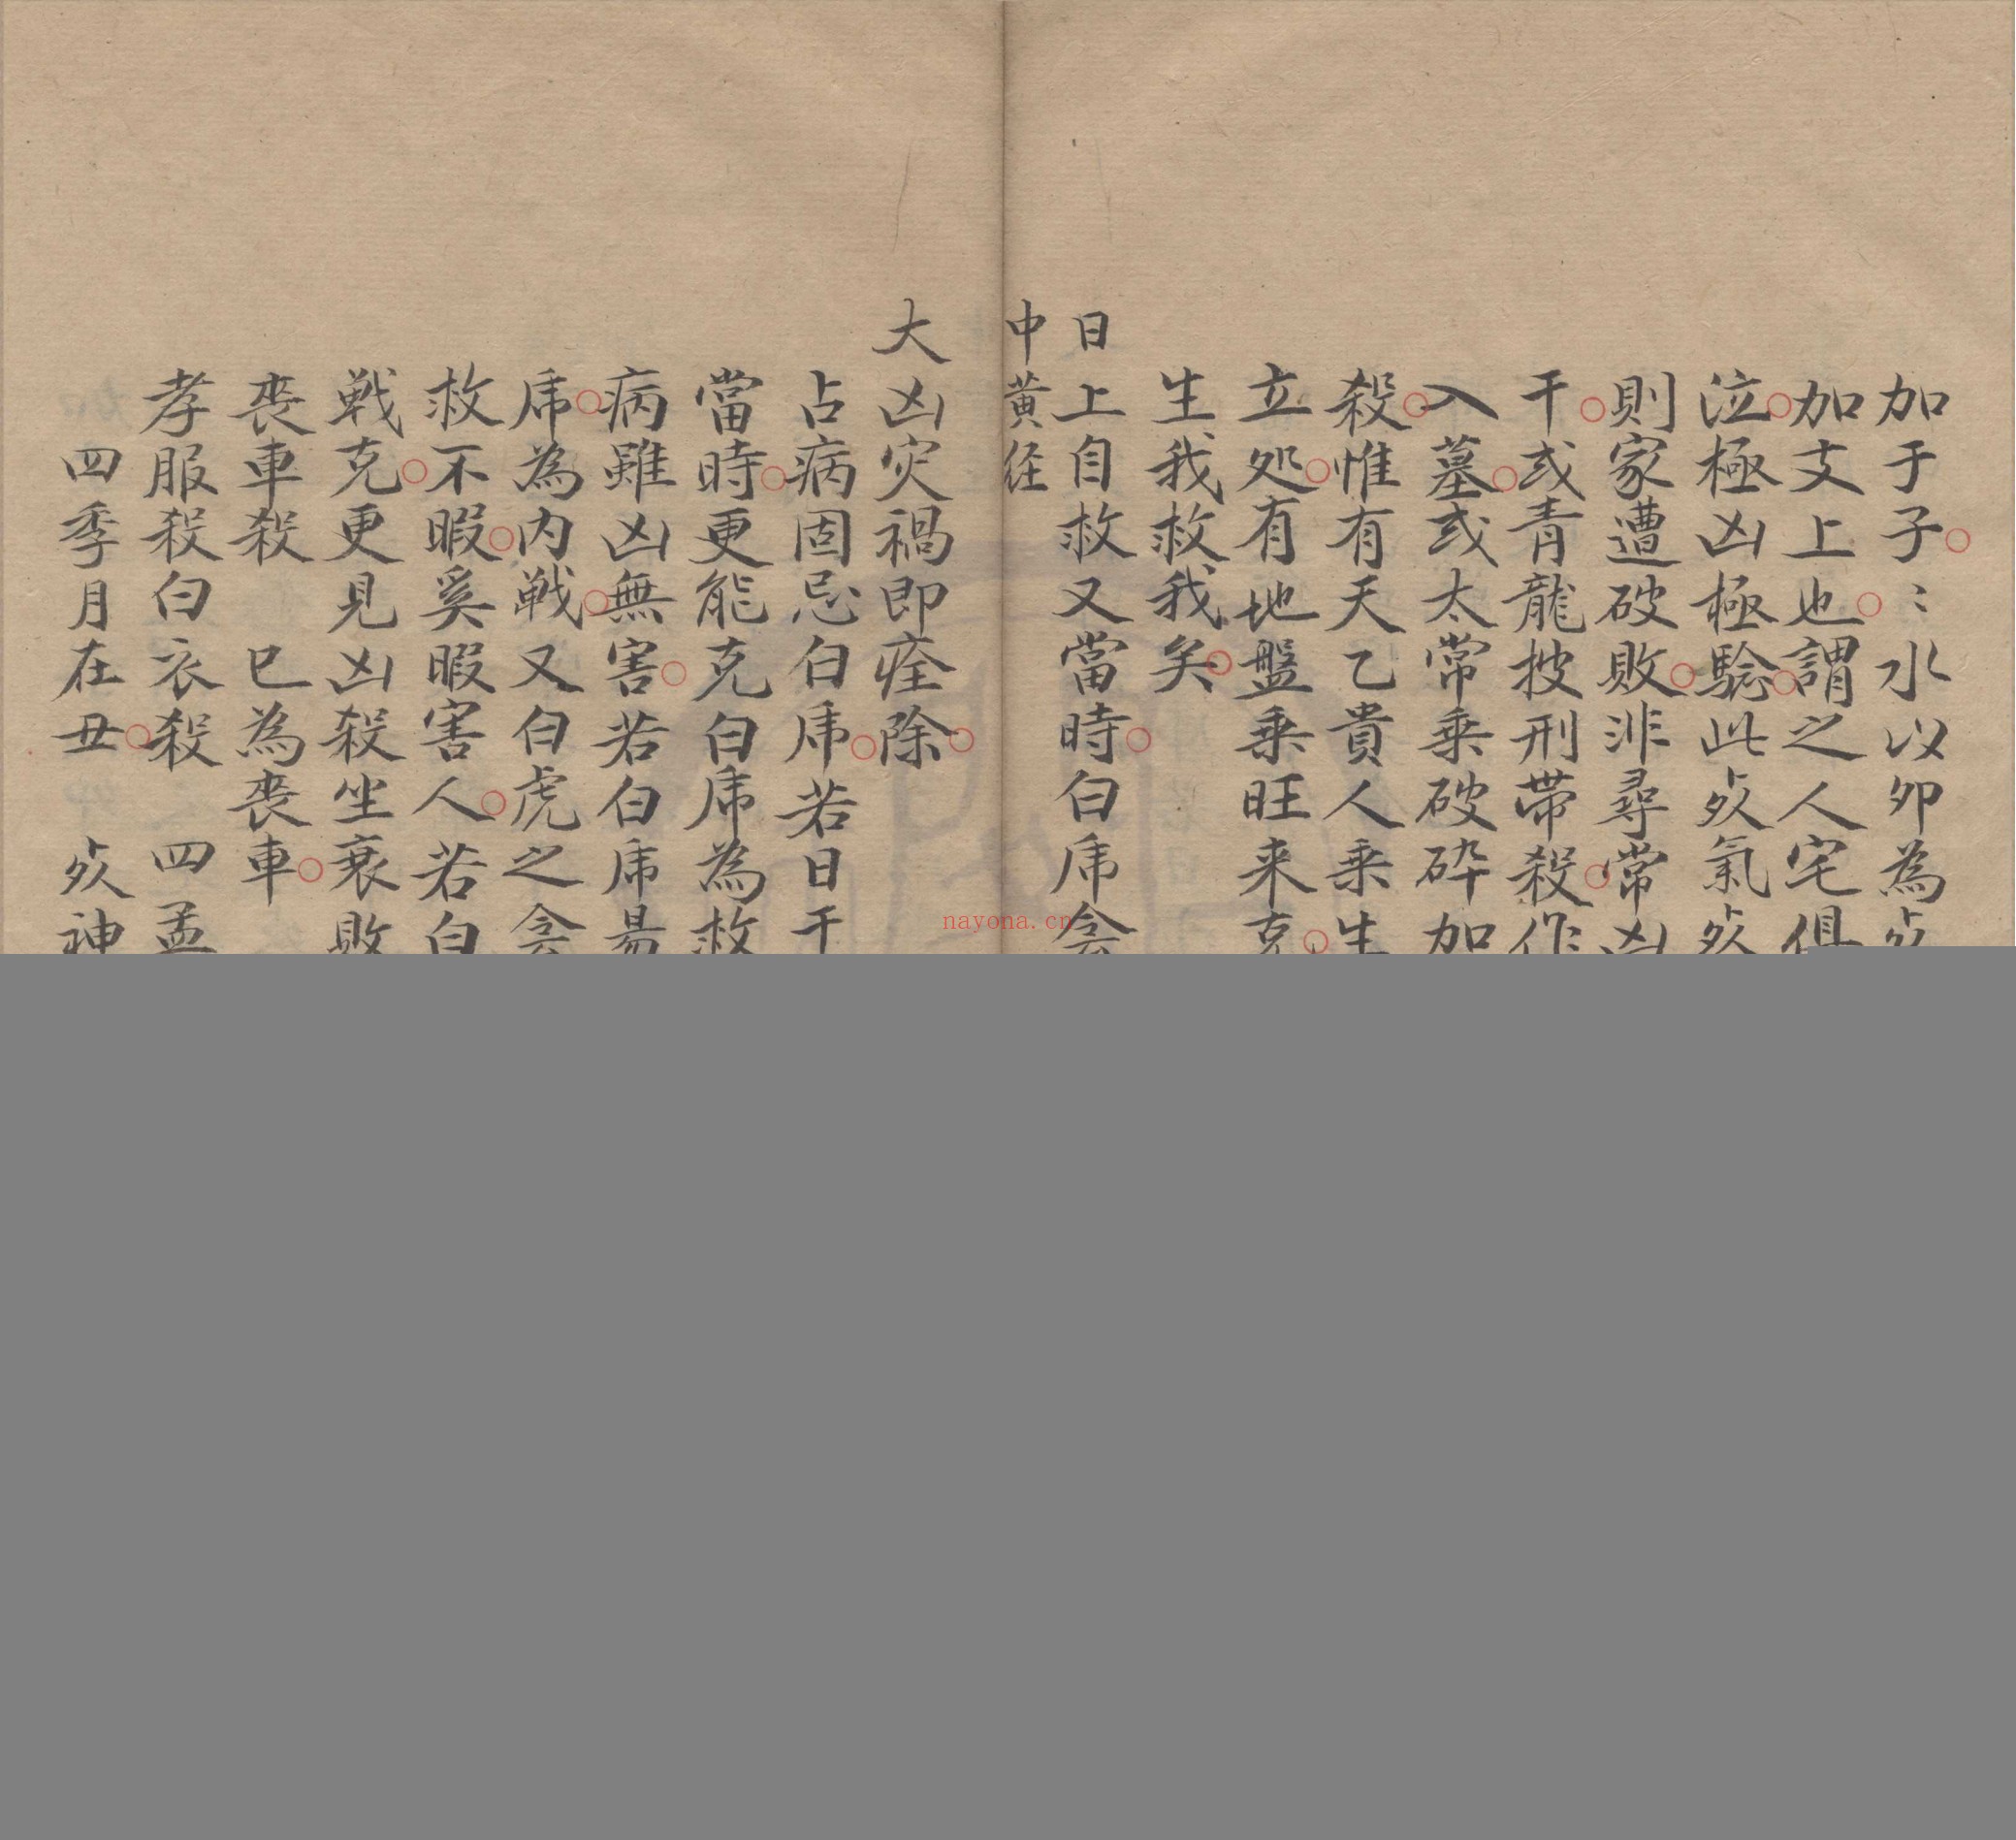 加于子〻水以卯為
加支上也謂之人宅俱
泣極凶極騐此
則家遭破敗非尋常凶
干或青龍披刑帶殺作
入墓或太常乘破碎加
殺惟有天乙貴人乘生
立処有地盤乘旺来克
生我救我矣
日上自救又當時白虎
中黄径
大凶灾禍即痊除
占病固忌白虎若日干
當時更能克白虎為救
病雖凶無害若白虎
虎為内戦又白虎之
救不暇奚暇害人若白
戦克更見凶殺坐衰敗
喪車殺 巳為喪車
孝服殺白衣殺 四孟
四季月在丑 神
nayona.cn